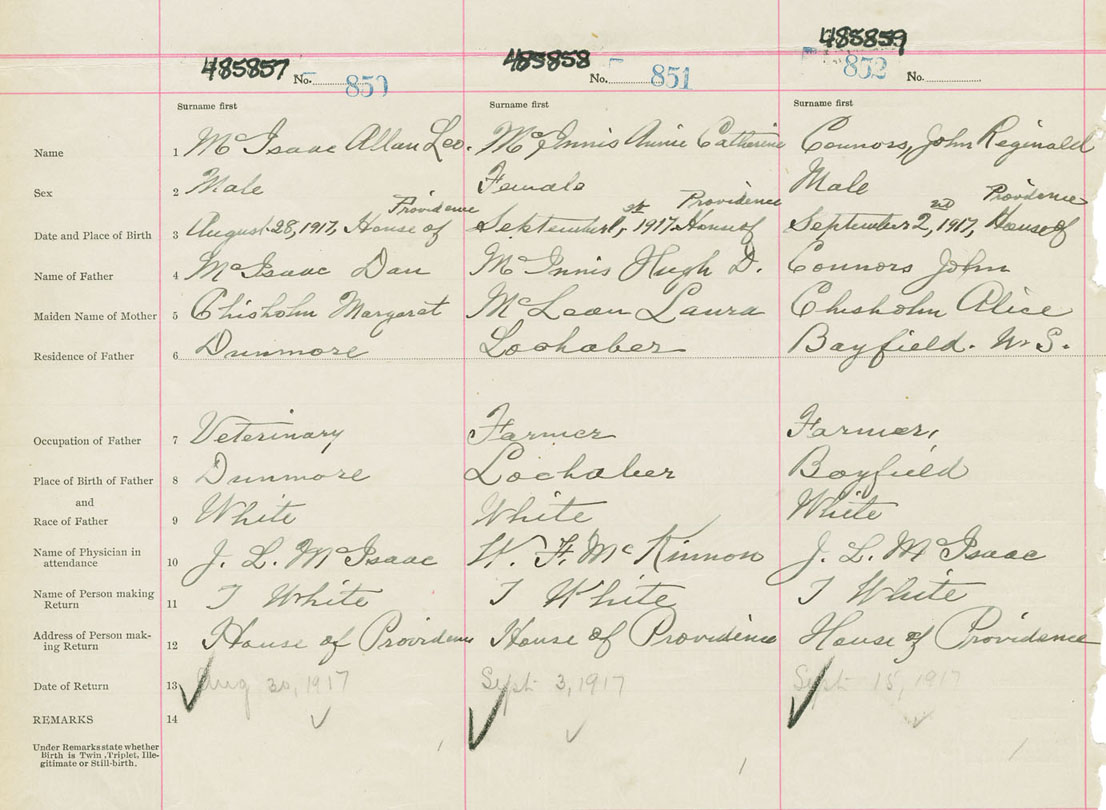 485857 485858 485859
No. 850 No. 851 852 No.
Surname first Surname first Surname first
Name 1 McIsaac Allan Leo. McInnis Annie Catherine Connors, John Reginald
Sex 2 Male Female Male
Providence st Providence 2nd Providence
Date and Place of Birth 3 August 28, 1917, House of September 1, 1917. House of September 2, 1917, House of
Name of Father 4 McIsaac Dan McInnis Hugh D. Connors John
Maiden Name of Mother 5 Chisholm Margaret McLean Laura Chisholm Alice
Residence of Father 6 Dunmore Lochaber Bayfield. N.S.
Occupation of Father 7 Veterinary Farmer Farmer,
Place of Birth of Father 8 Dunmore Lochaber Bayfield
and
Race of Father 9 White White White
Name of Physician in
attendance 10 J. L. McIsaac W. F. McKinnon J. L. McIsaac
Name of Person making
Return 11 T White T White T White
Address of Person mak-
ing Return 12 House of Providence House of Providence House of Providence
Date of Return 13 Aug 30, 1917 Sept 3, 1917 Sept 15, 1917
REMARKS 14
Under Remarks state whether
Birth is Twin, Triplet, Ille-
gitimate or Still-birth.